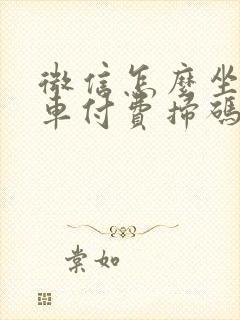 微信怎麼坐
車付費掃碼
棠如